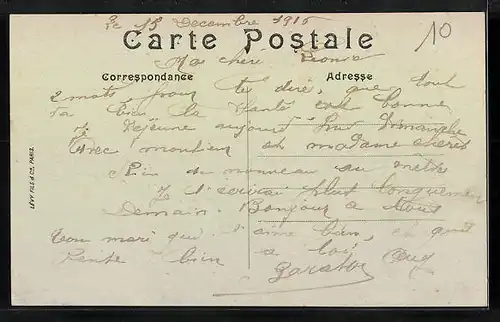 le 15 Decembre 1915
10
Carte Postale
Ma chérie
Correspondance
Adresse
2 mots pour te dire, que tout
va bien la santé est bonne
je Dejeune aujourd'hui Dimanche
avec monsieur et madame
Rien de nouveau au
Je t'ecrirai plus longuement
Demain. Bonjour a tous
Ton mari qui t'aime bien, et qui
bien a toi
LÉVY FILS & Cie, PARIS